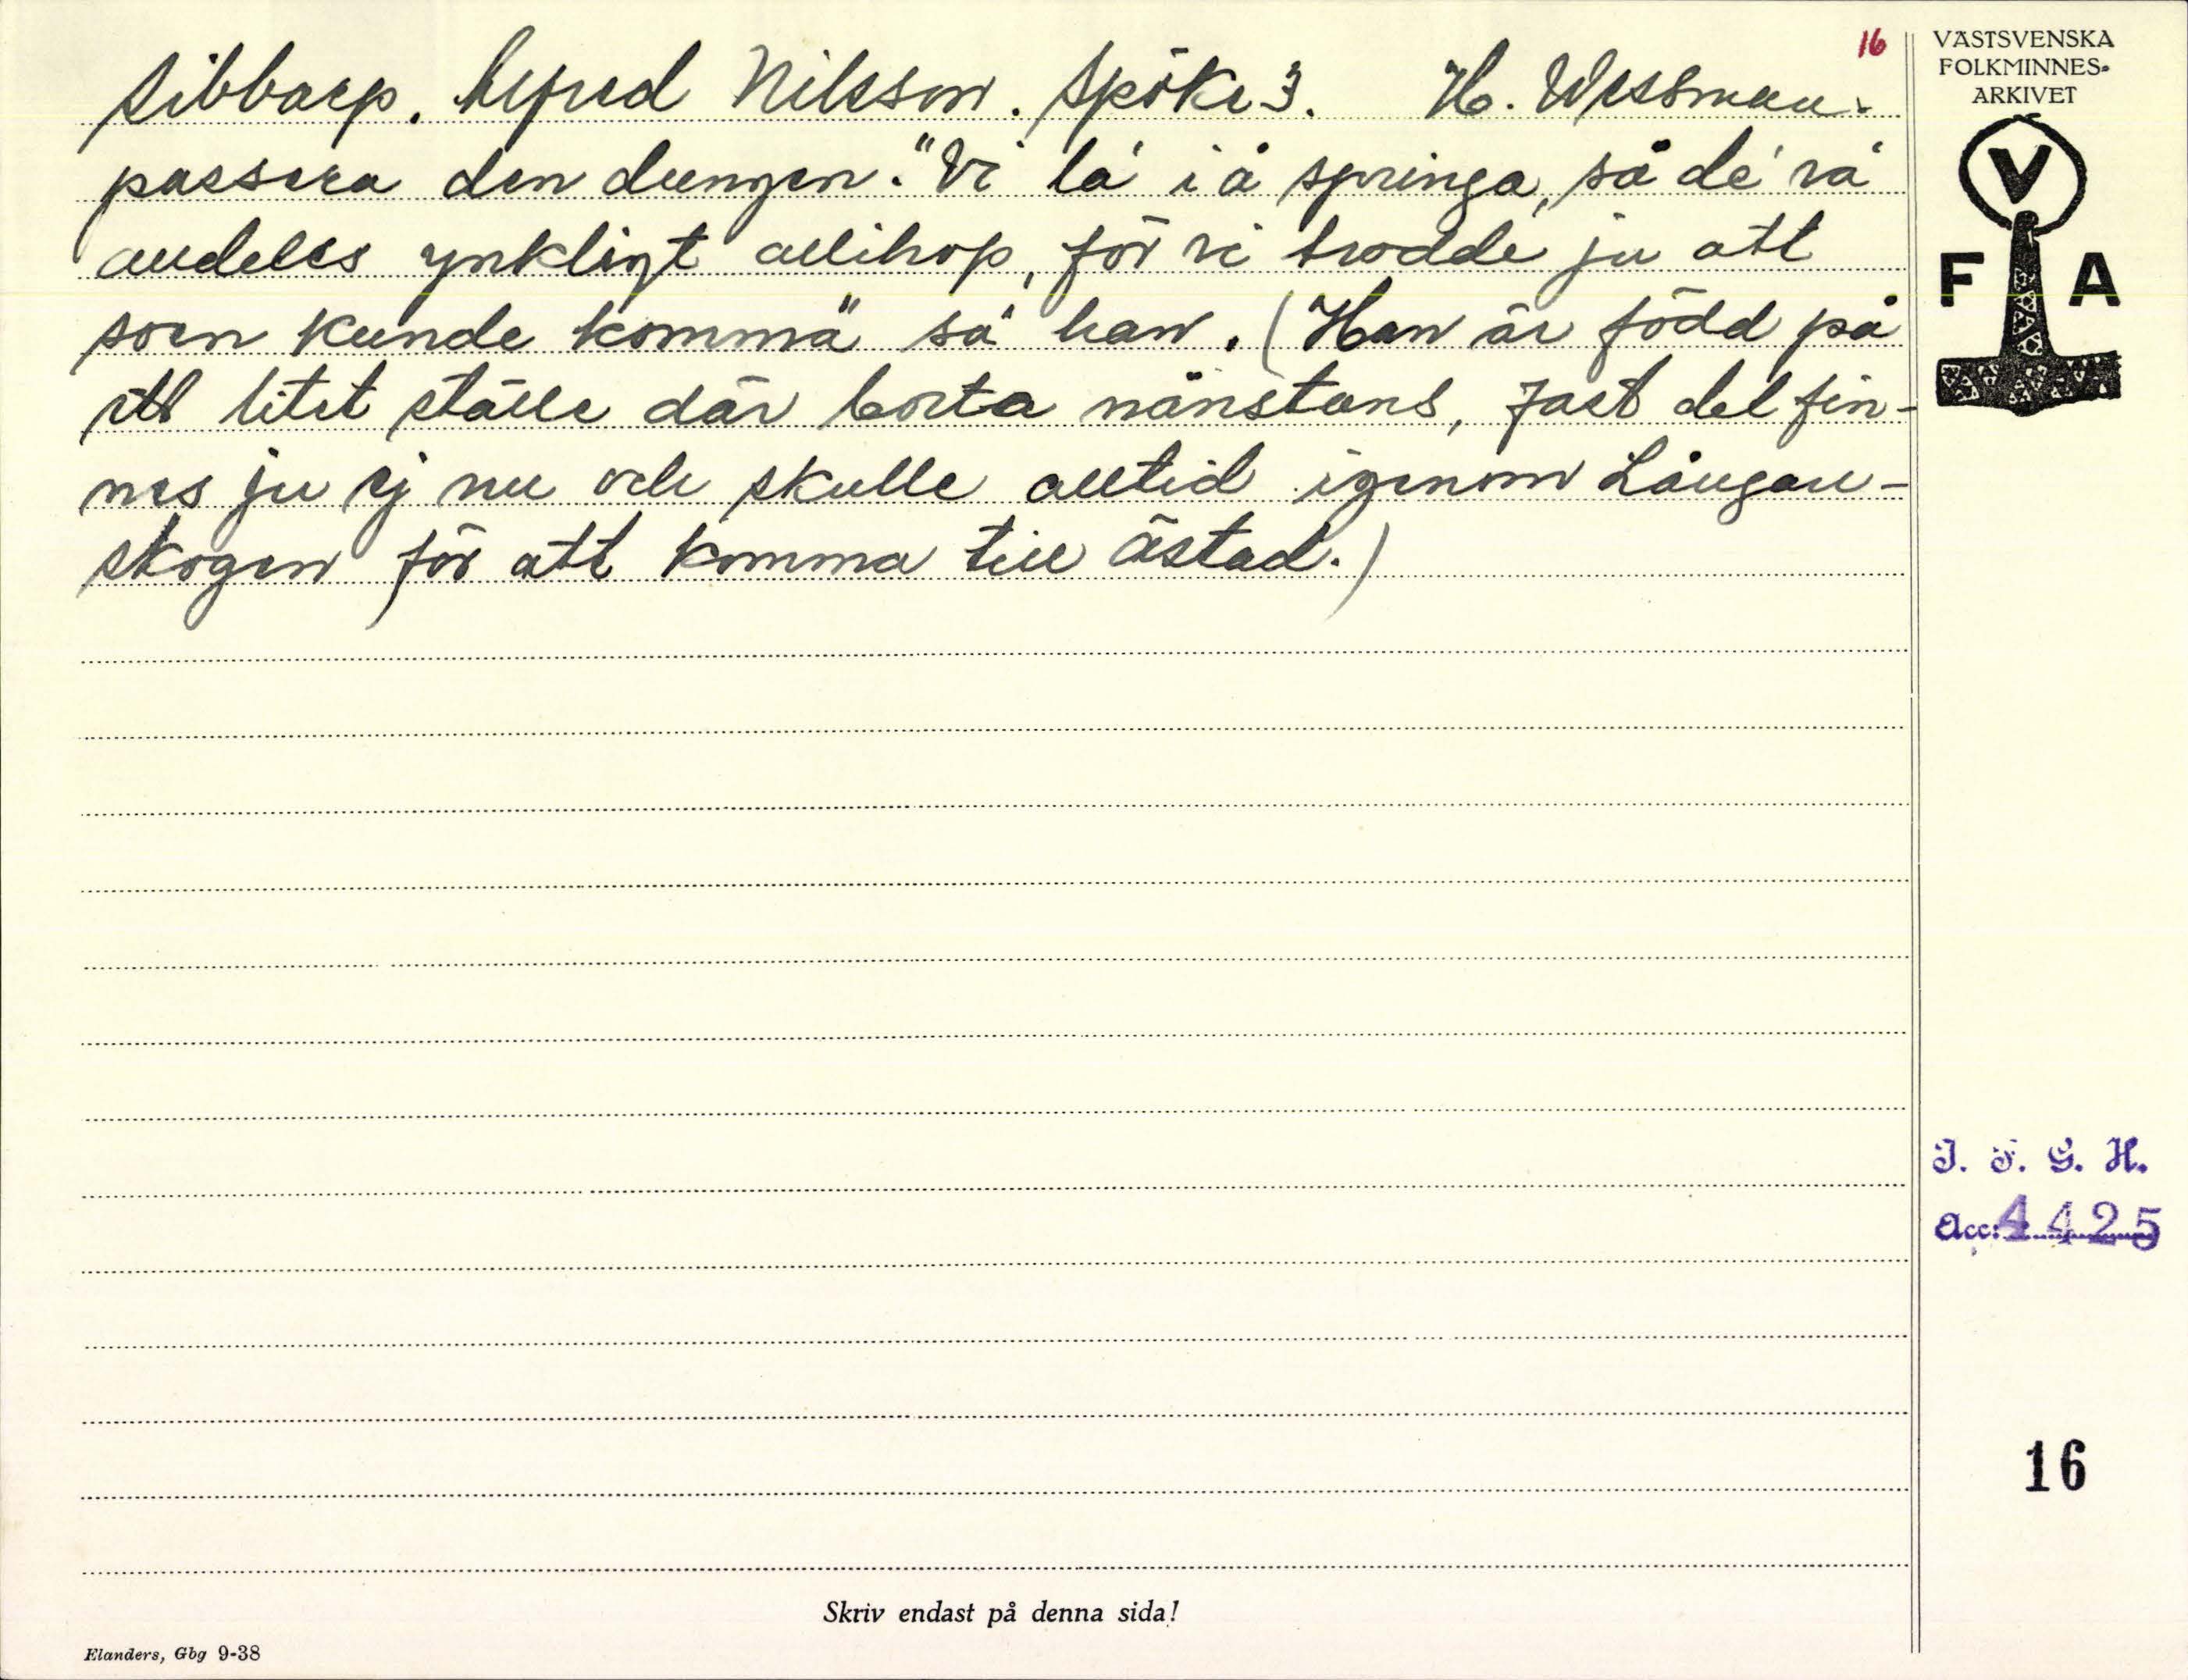 16
Sibbarp. Alfred Nilsson. Spöke 3. H. Wessman.
passera den dungen. "Vi la' i å springa, så de' va'
alldeles ynkligt allihop, för vi trodde ju att
soen kunde komma" sa' han. (Han är född på
ett litet ställe där borta nånstans, fast det fin-
nes ju ej nu och skulle alltid igenom Långan-
skogen för att komma till Åstad.)
VÄSTSVENSKA
FOLKMINNES-
ARKIVET
V
F A
I. F. G. H.
Acc: 4425
16
Skriv endast på denna sida!
Elanders, Gbg 9-38